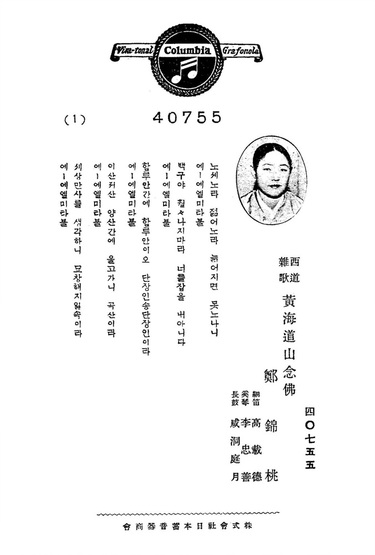 Viva-tonal Columbia Grafonola
(1)
40755
西道雜歌 黃海道山念佛
鄭錦桃
細笛 高載德
奚琴 李忠善
長鼓 咸洞庭月
四〇七五五
노체노라 젊어노라 늙어지면 못노나니
에ー에엘미라불
백구야 훨々나지마라 너를잡을 내아니다
에ー에엘미라불
함루안간에 함루안이오 단장인송단장인이라
에ー에엘미라불
이산저산 양산간에 울고가니 곡산이라
에ー에엘미라불
체상만사를 생각하니 묘창해지일속이라
에ー에엘미라불
株式會社日本蓄音器商會